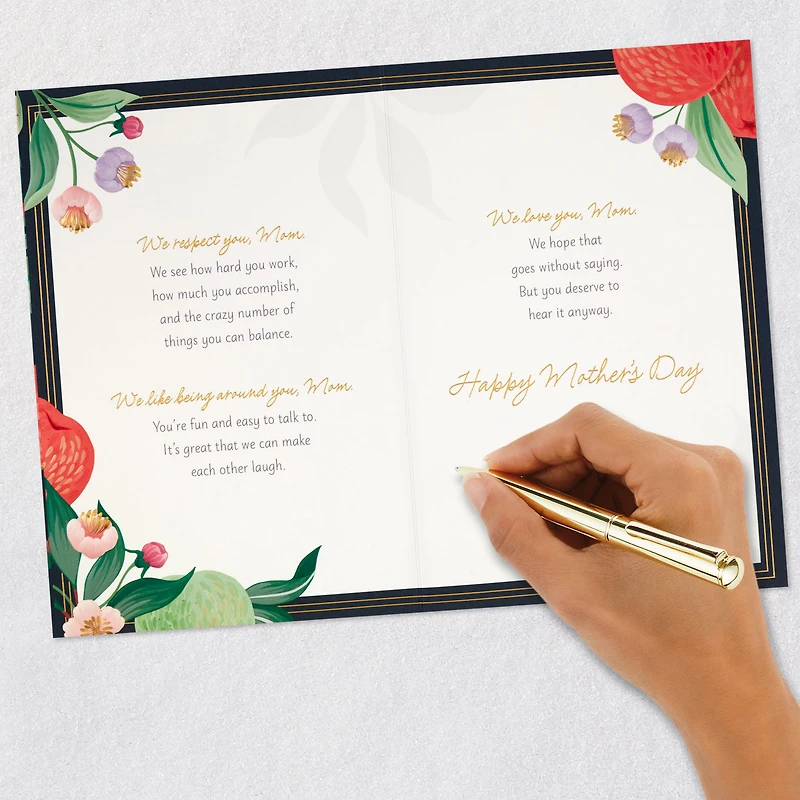 We respect you, Mom.
We see how hard you work,
how much you accomplish,
and the crazy number of
things you can balance.
We like being around you, Mom.
You're fun and easy to talk to.
It's great that we can make
each other laugh.
We love you, Mom.
We hope that
goes without saying.
But you deserve to
hear it anyway.
Happy Mother's Day